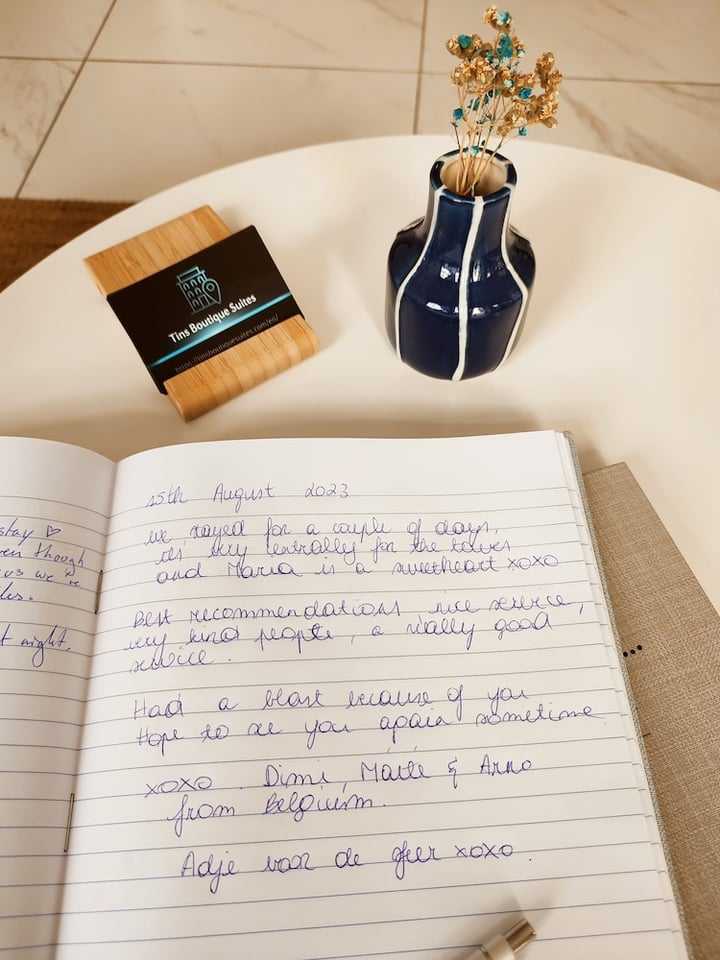 Tins Boutique Suites
https://tinsboutiquesuites.com/en/
stay ♡
even though
us we're
night,
15th August 2023
we stayed for a couple of days,
its very centrally for the
and Maria is a sweetheart xoxo
Best recommendations, nice service,
very kind people, a really good
service.
Had a blast because of you
Hope to see you again sometime
xoxo. Dimi, & Arno
from Belgium.
Adje voor de sfeer xoxo.